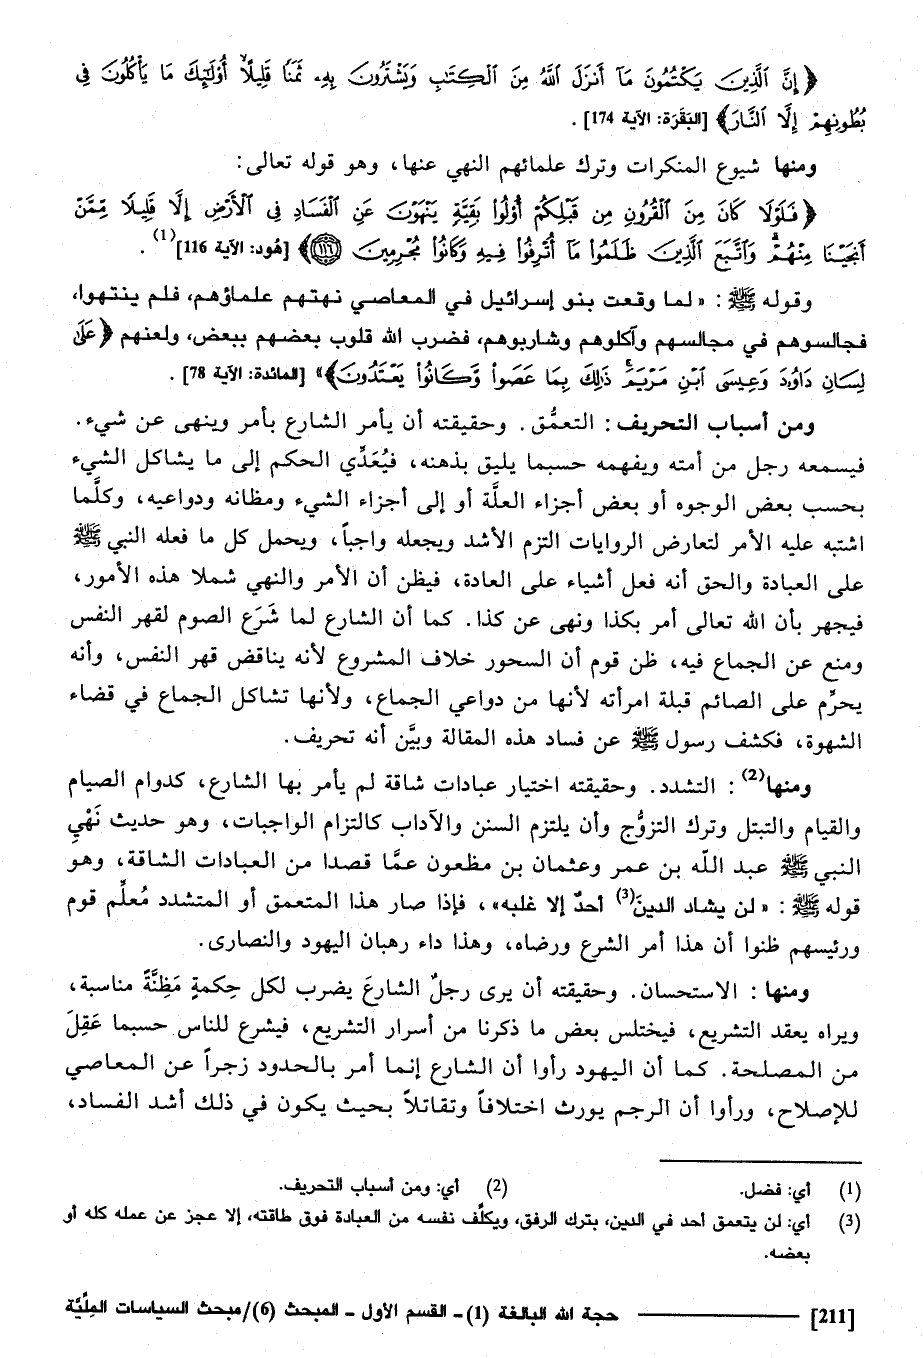 ﴿إِنَّ ٱلَّذِينَ يَكْتُمُونَ مَآ أَنزَلَ ٱللَّهُ مِنَ ٱلْكِتَٰبِ وَيَشْتَرُونَ بِهِۦ ثَمَنًا قَلِيلًا أُو۟لَٰٓئِكَ مَا يَأْكُلُونَ فِى
بُطُونِهِمْ إِلَّا ٱلنَّارَ﴾ [البَقَرَة: الآية 174] .
ومنها شيوع المنكرات وترك علمائهم النهي عنها، وهو قوله تعالى:
﴿فَلَوْلَا كَانَ مِنَ ٱلْقُرُونِ مِن قَبْلِكُمْ أُو۟لُوا۟ بَقِيَّةٍ يَنْهَوْنَ عَنِ ٱلْفَسَادِ فِى ٱلْأَرْضِ إِلَّا قَلِيلًا مِّمَّنْ
أَنجَيْنَا مِنْهُمْ وَٱتَّبَعَ ٱلَّذِينَ ظَلَمُوا۟ مَآ أُتْرِفُوا۟ فِيهِ وَكَانُوا۟ مُجْرِمِينَ ١١٦﴾ [هُود: الآية 116](1) .
وقوله ﷺ : «لما وقعت بنو إسرائيل في المعاصي نهتهم علماؤهم، فلم ينتهوا،
فجالسوهم في مجالسهم وآكلوهم وشاربوهم، فضرب الله قلوب بعضهم ببعض، ولعنهم ﴿عَلَىٰ
لِسَانِ دَاوُۥدَ وَعِيسَى ٱبْنِ مَرْيَمَ ذَٰلِكَ بِمَا عَصَوا۟ وَّكَانُوا۟ يَعْتَدُونَ﴾» [المائدة: الآية 78] .
ومن أسباب التحريف : التعمُّق . وحقيقته أن يأمر الشارع بأمر وينهى عن شيء .
فيسمعه رجل من أمته ويفهمه حسبما يليق بذهنه، فيُعَدِّي الحكم إلى ما يشاكل الشيء
بحسب بعض الوجوه أو بعض أجزاء العلَّة أو إلى أجزاء الشيء ومظانه ودواعيه، وكلَّما
اشتبه عليه الأمر لتعارض الروايات التزم الأشد ويجعله واجباً، ويحمل كل ما فعله النبي ﷺ
على العبادة والحق أنه فعل أشياء على العادة، فيظن أن الأمر والنهي شملا هذه الأمور،
فيجهر بأن الله تعالى أمر بكذا ونهى عن كذا. كما أن الشارع لما شَرَع الصوم لقهر النفس
ومنع عن الجماع فيه، ظن قوم أن السحور خلاف المشروع لأنه يناقض قهر النفس، وأنه
يحرِّم على الصائم قبلة امرأته لأنها من دواعي الجماع، ولأنها تشاكل الجماع في قضاء
الشهوة، فكشف رسول ﷺ عن فساد هذه المقالة وبيَّن أنه تحريف.
ومنها(2) : التشدد. وحقيقته اختيار عبادات شاقة لم يأمر بها الشارع، كدوام الصيام
والقيام والتبتل وترك التزوُّج وأن يلتزم السنن والآداب كالتزام الواجبات، وهو حديث نَهْيِ
النبي ﷺ عبد اللّه بن عمر وعثمان بن مظعون عمَّا قصدا من العبادات الشاقة، وهو
قوله ﷺ : «لن يشاد الدينَ(3) أحدٌ إلا غلبه» ، فإذا صار هذا المتعمق أو المتشدد مُعلِّم قوم
ورئيسهم ظنوا أن هذا أمر الشرع ورضاه، وهذا داء رهبان اليهود والنصارى.
ومنها : الاستحسان. وحقيقته أن يرى رجلٌ الشارعَ يضرب لكل حِكمةٍ مَظِنَّةً مناسبة،
ويراه يعقد التشريع، فيختلس بعض ما ذكرنا من أسرار التشريع، فيشرع للناس حسبما عَقِلَ
من المصلحة. كما أن اليهود رأوا أن الشارع إنما أمر بالحدود زجراً عن المعاصي
للإصلاح، ورأوا أن الرجم يورث اختلافاً وتقاتلاً بحيث يكون في ذلك أشد الفساد،
(1) أي: فضل. (2) أي: ومن أسباب التحريف.
(3) أي: لن يتعمق أحد في الدين، بترك الرفق، ويكلِّف نفسه من العبادة فوق طاقته، إلا عجز عن عمله كله أو
بعضه.
[211] حجة الله البالغة (1)ـ القسم الأول ـ المبحث (6)/مبحث السياسات المِلِّيَّة